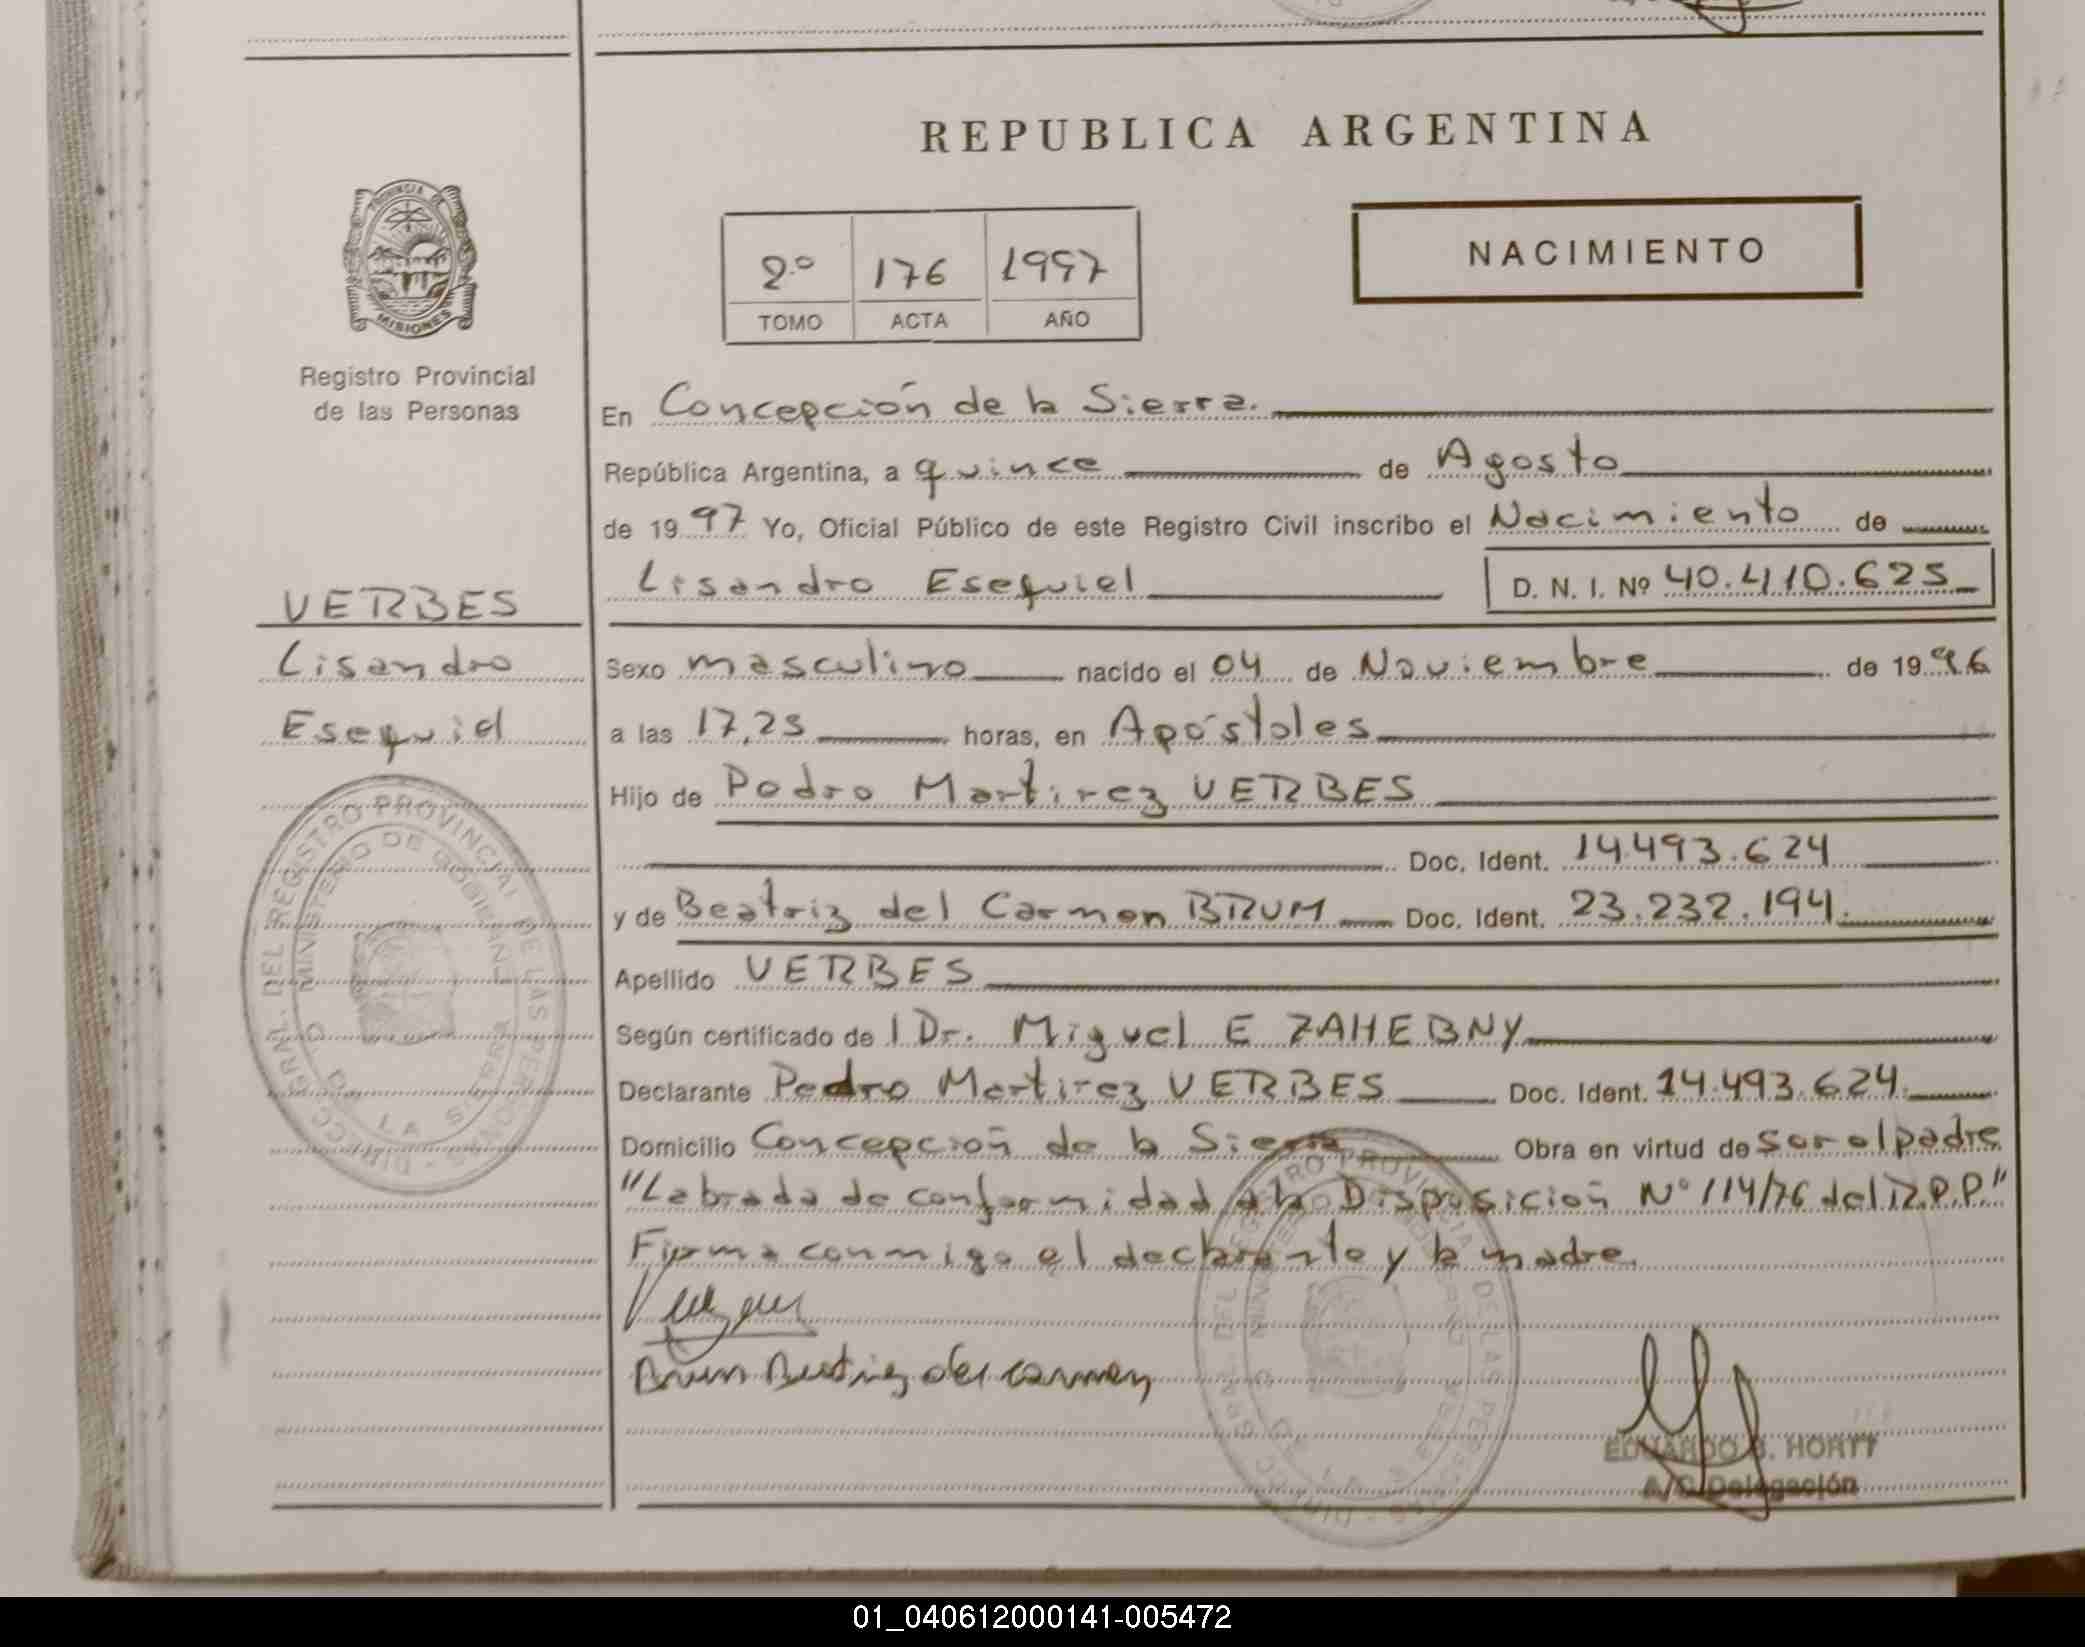 REPUBLICA ARGENTINA
PROVINCIA DE
MISIONES
2º 176 1997
TOMO ACTA AÑO
NACIMIENTO
Registro Provincial
de las Personas
En Concepción de la Sierra.
República Argentina, a quince de Agosto
de 1997 Yo, Oficial Público de este Registro Civil inscribo el Nacimiento de
Lisandro Esequiel D. N. I. Nº 40.410.625
VERBES
Lisandro
Esequiel
Sexo masculino nacido el 04 de Noviembre de 1996
a las 17,25 horas, en Apóstoles
Hijo de Pedro Martirez VERBES
Doc. Ident. 14.493.624
y de Beatriz del Carmen BRUM Doc. Ident. 23.232.194.
Apellido VERBES
Según certificado del Dr. Miguel E ZAHEBNY
Declarante Pedro Martirez VERBES Doc. Ident. 14.493.624.
Domicilio Concepción de la Sierra Obra en virtud de ser el padre
"Labrada de conformidad a la Disposición Nº 114/76 del R.P.P."
Firma conmigo el declarante y la madre.
Brum Beatriz del carmen
DIRECC. GRAL. DEL REGISTRO PROVINCIAL DE LAS PERSONAS
MINISTERIO DE GOBIERNO
DIRECC. GRAL. DEL REGISTRO PROVINCIAL DE LAS PERSONAS
MINISTERIO DE GOBIERNO
EDUARDO B. HORTT
A/C Delegación
01_040612000141-005472